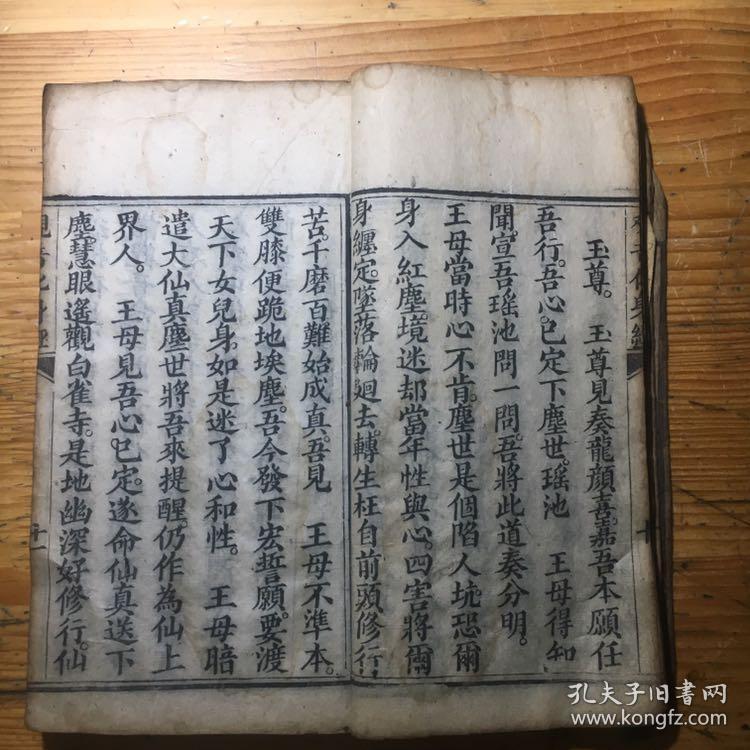 玉尊。　玉尊見奏龍顏喜。嘉吾本願任
吾行。吾心。已定下塵世。瑤池　王母得知
聞。宣吾瑤池問一問。吾將此道奏分明。
王母當時心不肯。塵世是個陷人坑。恐爾
身入紅塵。境迷却當年性與心。四害將爾
身纏定。墜落輪廻去。轉生枉自前頭修行
苦。千磨百難始成真。吾見　王母不準本。
雙膝便跪地埃塵。吾今發下宏誓願。要渡
天下女兒身如是迷了心和性。　王母暗
遣大仙真塵世將吾來提醒。仍作為仙上
界人。　王母見吾心。已定。遂命仙真送下
塵。慧眼遙觀白雀寺。是地幽深好修行。仙
觀音化身經
十一
孔夫子旧书网
www.kongfz.com